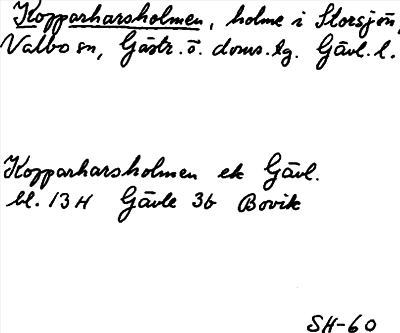 Kopparharsholmen, holme i Storsjön,
Valbo sn, Gästr. ö. doms.lg. Gävl. l.
Kopparharsholmen ek Gävl.
bl. 13 H Gävle 3b Bovik
SH-60